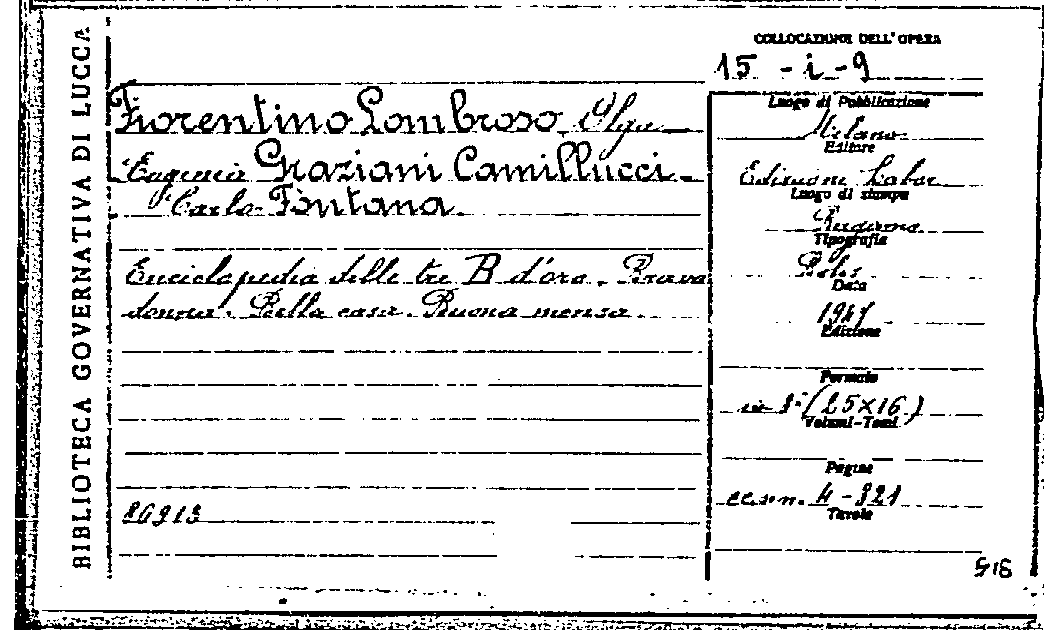 BIBLIOTECA GOVERNATIVA DI LUCCA
COLLOCAZIONE DELL'OPERA
15 - i - 9
Fiorentino Lombroso Olga
Eugenia Graziani Camillucci -
Carla Fontana
Enciclopedia delle tre B d'oro. Brava
donna. Bella casa. Buona mensa.
86913
Luogo di Pubblicazione
Milano
Editore
Edizioni Labor
Luogo di stampa
Tipografia
Data
1947
Edizione
Formato
in 8° (25×16)
Volumi-Tomi
Pagine
cc.sn. 4 - 321
Tavole
516